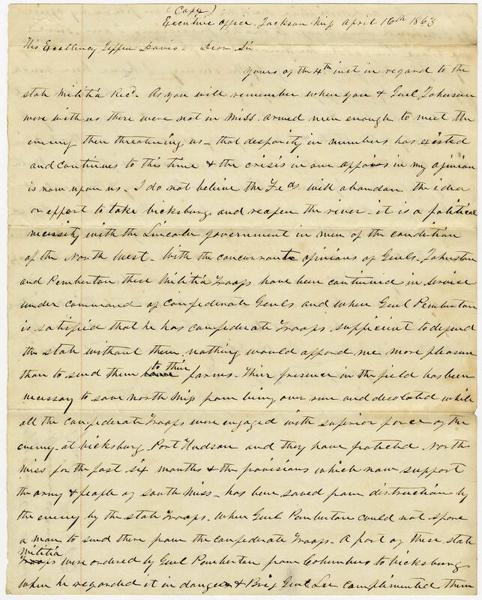 (Copy)
Executive Office, Jackson Miss April 16th 1863
His Excellency Jeffn Davis. Dear Sir
yours of the 4th inst in regard to the
state militia Recd. As you will remember when you & Genl Johnston
were with us there were not in Miss. armed men enough to meet the
enemy then threatening us – that desparity in numbers has existed
and continues to this time & the crisis in our affairs in my opinion
is now upon us – I do not believe the Feds will abandon the idea
or effort to take vicksburg and reopen the river – it is a political
necessity with the Lincoln government in view of the condition
of the North West. With the concurrent opinions of Genls. Johnston
and Pemberton these Militia Troops have been continued in service
under command of Confederate Genls and when Genl Pemberton
is satisfied that he has confederate Troops sufficient to defend
the state without them, nothing would afford me more pleasure
than to send them to their farms. Their presence in the field has been
necessary to save north Miss from being over run and desolated while
all the confederate Troops were engaged with superior force of the
enemy at vicksburg Port Hudson and they have protected North
Miss for the past six months & the provisions which now support
the army & people of south Miss – has been saved from distruction by
the enemy by the state Troops. When Genl Pemberton could not spare
a man to send there from the Confederate Troops. A part of these state
militia
Troops were ordered by Genl Pemberton from Columbus to vicksburg
when he regarded it in danger & Brig Genl Lee complimented them